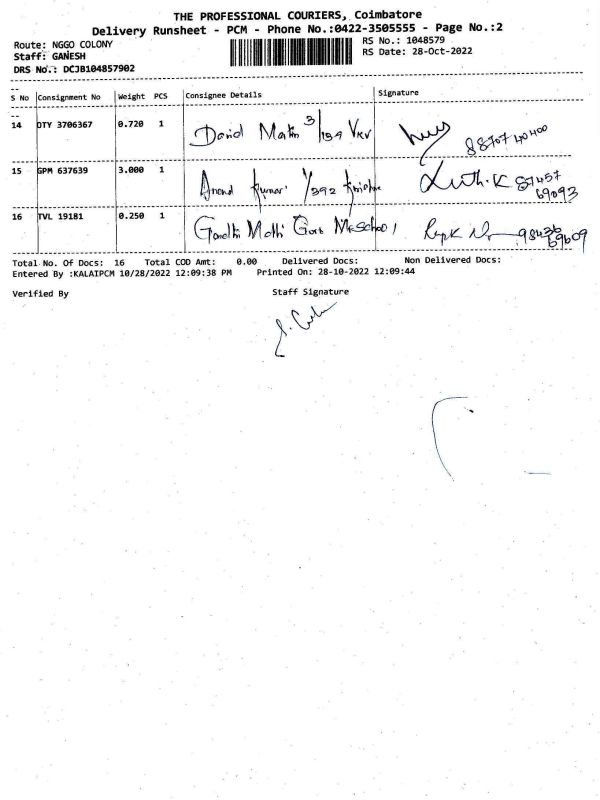 THE PROFESSIONAL COURIERS, Coimbatore
Delivery Runsheet - PCM - Phone No.:0422-3505555 - Page No.:2
Route: NGGO COLONY
RS No.: 1048579
Staff: GANESH
RS Date: 28-Oct-2022
DRS No.: DCJB104857902
S No Consignment No Weight PCS Consignee Details Signature
14 DTY 3706367 0.720 1 David Matin 3/159 VKV
88707 40400
15 GPM 637639 3.000 1 Anand Kumar 1/392 87457
69093
16 TVL 19181 0.250 1 Gandhi Mathi 98436
69609
Total No. Of Docs: 16 Total COD Amt: 0.00 Delivered Docs: Non Delivered Docs:
Entered By :KALAIPCM 10/28/2022 12:09:38 PM Printed On: 28-10-2022 12:09:44
Verified By Staff Signature